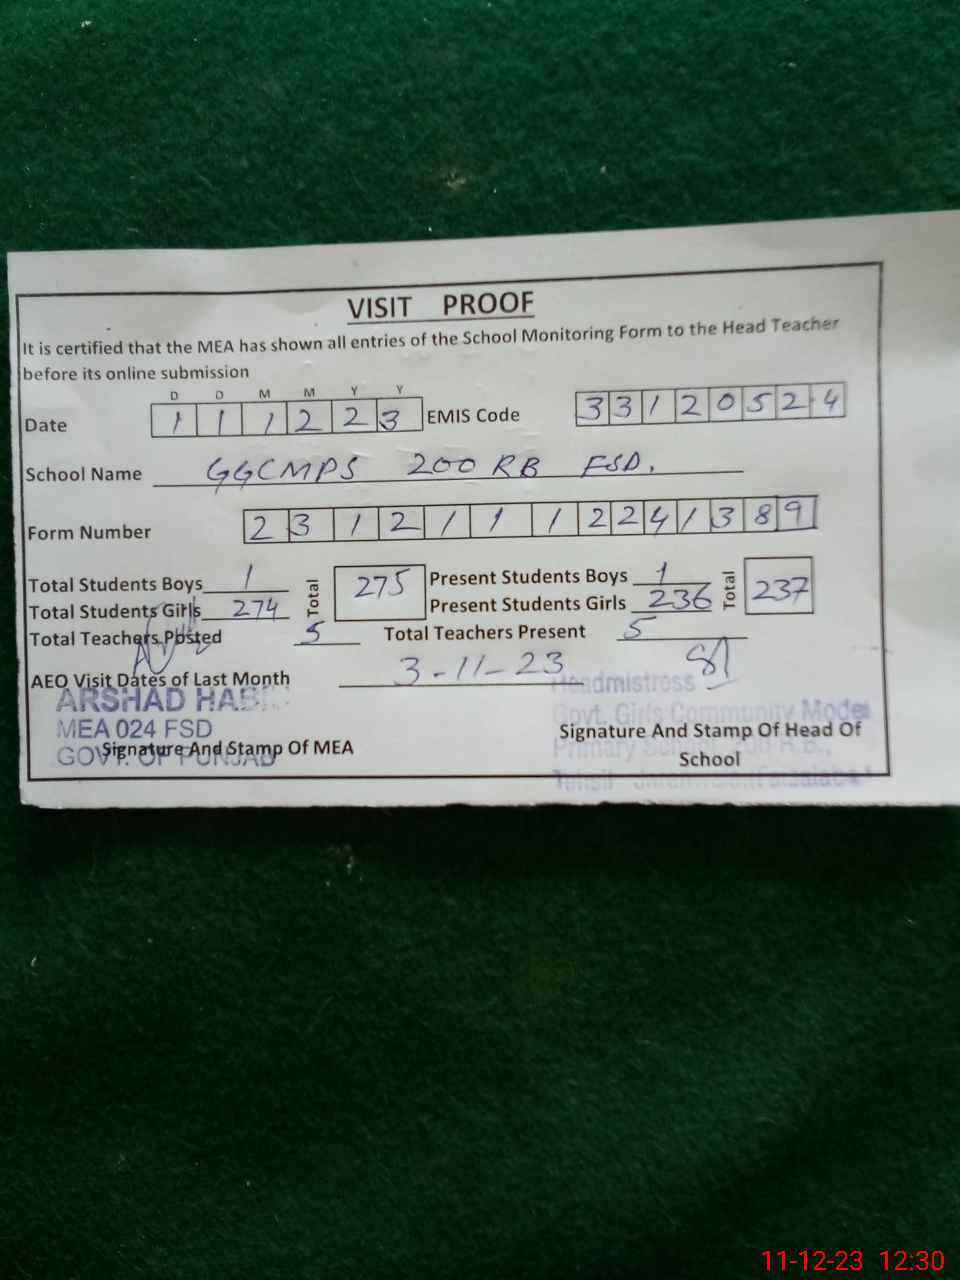 VISIT PROOF
It is certified that the MEA has shown all entries of the School Monitoring Form to the Head Teacher
before its online submission
D D M M Y Y
Date 1 1 1 2 2 3 EMIS Code 3 3 1 2 0 5 2 4
School Name GGCMPS 200 RB FSD.
Form Number 2 3 1 2 1 1 1 2 2 4 1 3 8 9
Total Students Boys 1 Total 275 Present Students Boys 1 Total 237
Total Students Girls 274 Present Students Girls 236
Total Teachers Posted 5 Total Teachers Present 5
AEO Visit Dates of Last Month 3-11-23
ARSHAD
MEA 024 FSD
GOVT. OF PUNJAB
Signature And Stamp Of MEA
Headmistress
Govt. Girls Community Model
Primary School, 200 R.B.,
Signature And Stamp Of Head Of
School
11-12-23 12:30